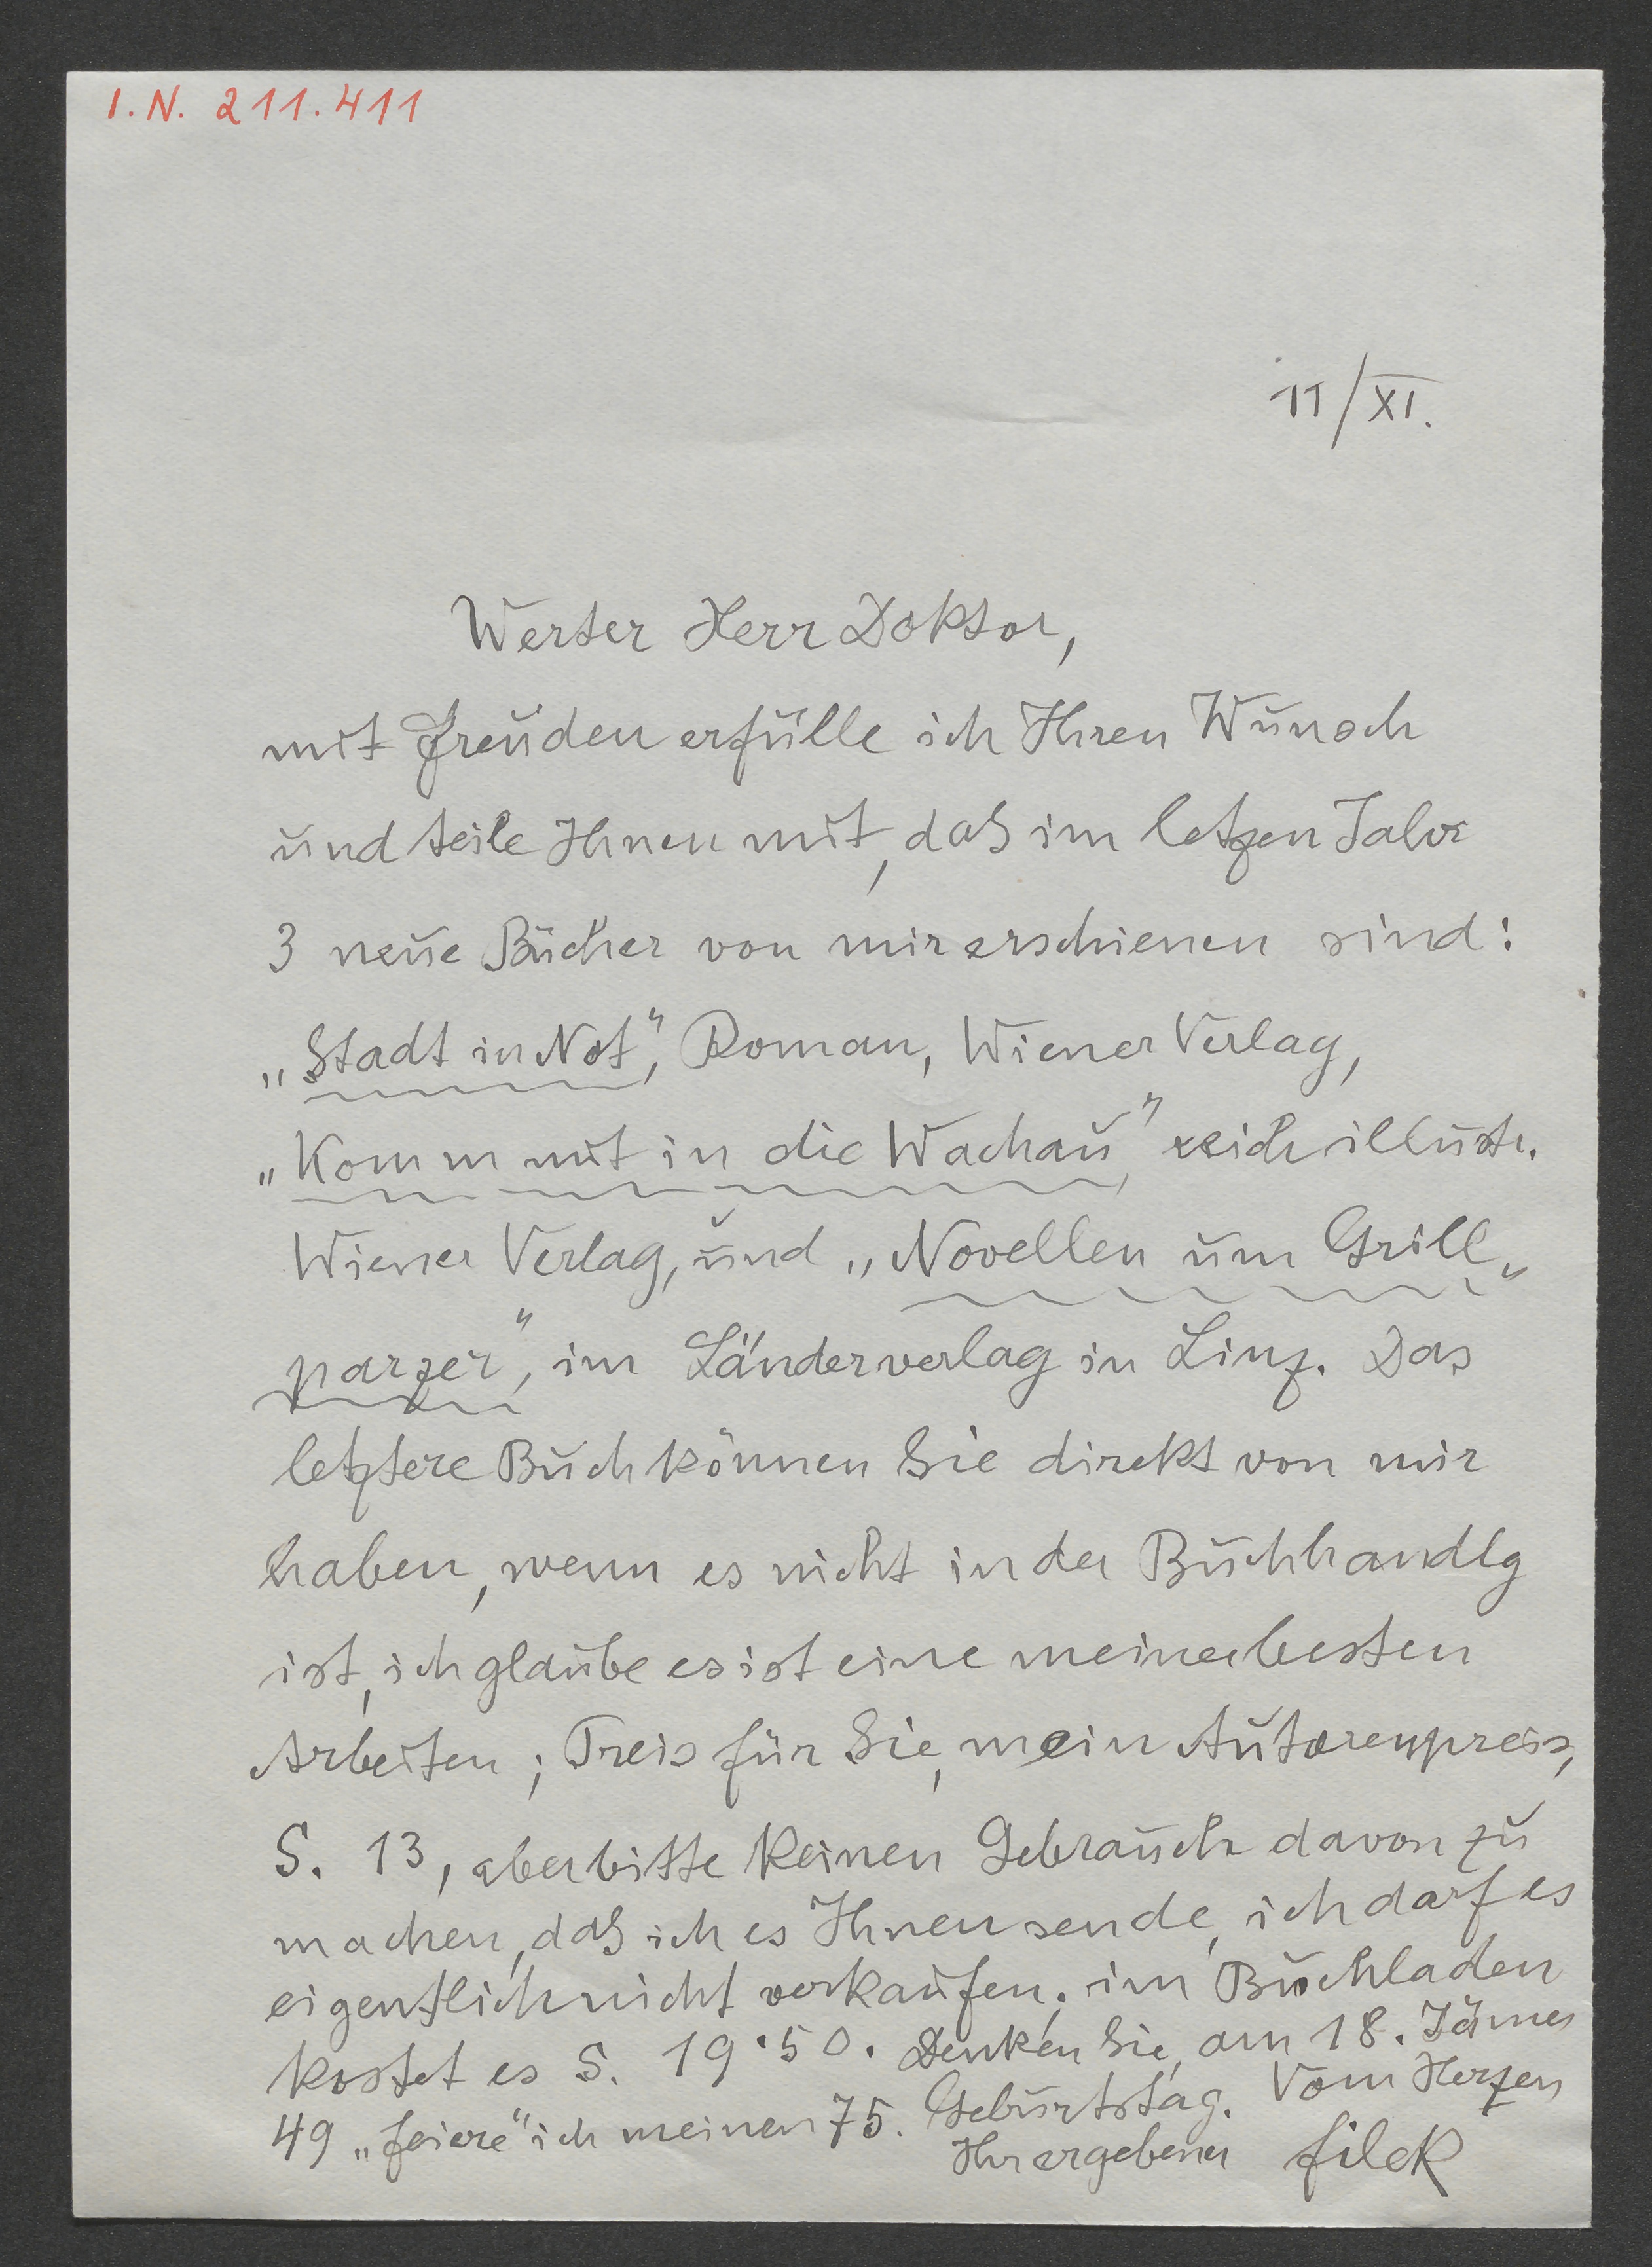 I.N. 211.411
11/XI.
Werter Herr Doktor,
mit Freuden erfülle ich Ihren Wunsch
und teile Ihnen mit, daß im letzen Jahr
3 neue Bücher von mir erschienen sind:
„Stadt in Not", Roman, Wiener Verlag,
„Komm mit in die Wachau", reich illustr.
Wiener Verlag, und „Novellen um Grill-
parzer", im Länderverlag in Linz. Das
letztere Buch können Sie direkt von mir
haben, wenn es nicht in der Buchhandlg
ist, ich glaube es ist eine meiner besten
Arbeiten; Preis für Sie, mein Autorenpreis,
S. 13, aber bitte keinen Gebrauch davon zu
machen, daß ich es Ihnen sende, ich darf es
eigentlich nicht verkaufen; im Buchladen
kostet es S. 19·50. Denken Sie, am 18. Jänner
49 „feiere" ich meinen 75. Geburtstag. Vom Herzen
Ihr ergebener Filek